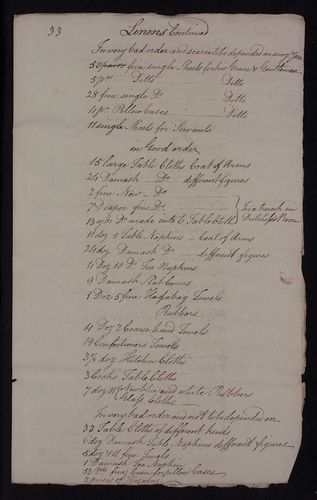 33 Linens Continued
In very bad order and scarce to be depended on every
50 fine single Sheets for his Grace & Gentlemen
5 prs Ditto Ditto
28 fine single Do Ditto
4 pr. Pillow Cases Ditto
11 single Sheets for Servants
in Good order
15 large Table Cloths Coat of Arms
24 Damask Do different figures
2 fine New Do
7 Diaper fine Do
13 yds Do made into 6 Table Cloths } in a trunk in
11 doz 5 Table Napkins Coat of Arms
24 doz Damask Do different figures
4 Doz 10 Do Tea Napkins
9 Damask Rubbours
1 Doz 5 fine Hagabag Towels
Rubbers
4 Doz 2 Coarse hand Towels
19 Confectioners Towels
3½ doz Kitchin Cloths
3 Cooks Table Cloths
7 doz New blue and white Rubbers
Glass Cloths
In very bad order and not to be depended on
33 Table Cloths of different kinds
6 doz Damask Table Napkins different figures
5 doz & 11 fine Towels
1 Damask Tea Napkin
33 fine Pillow Cases
2 pieces of